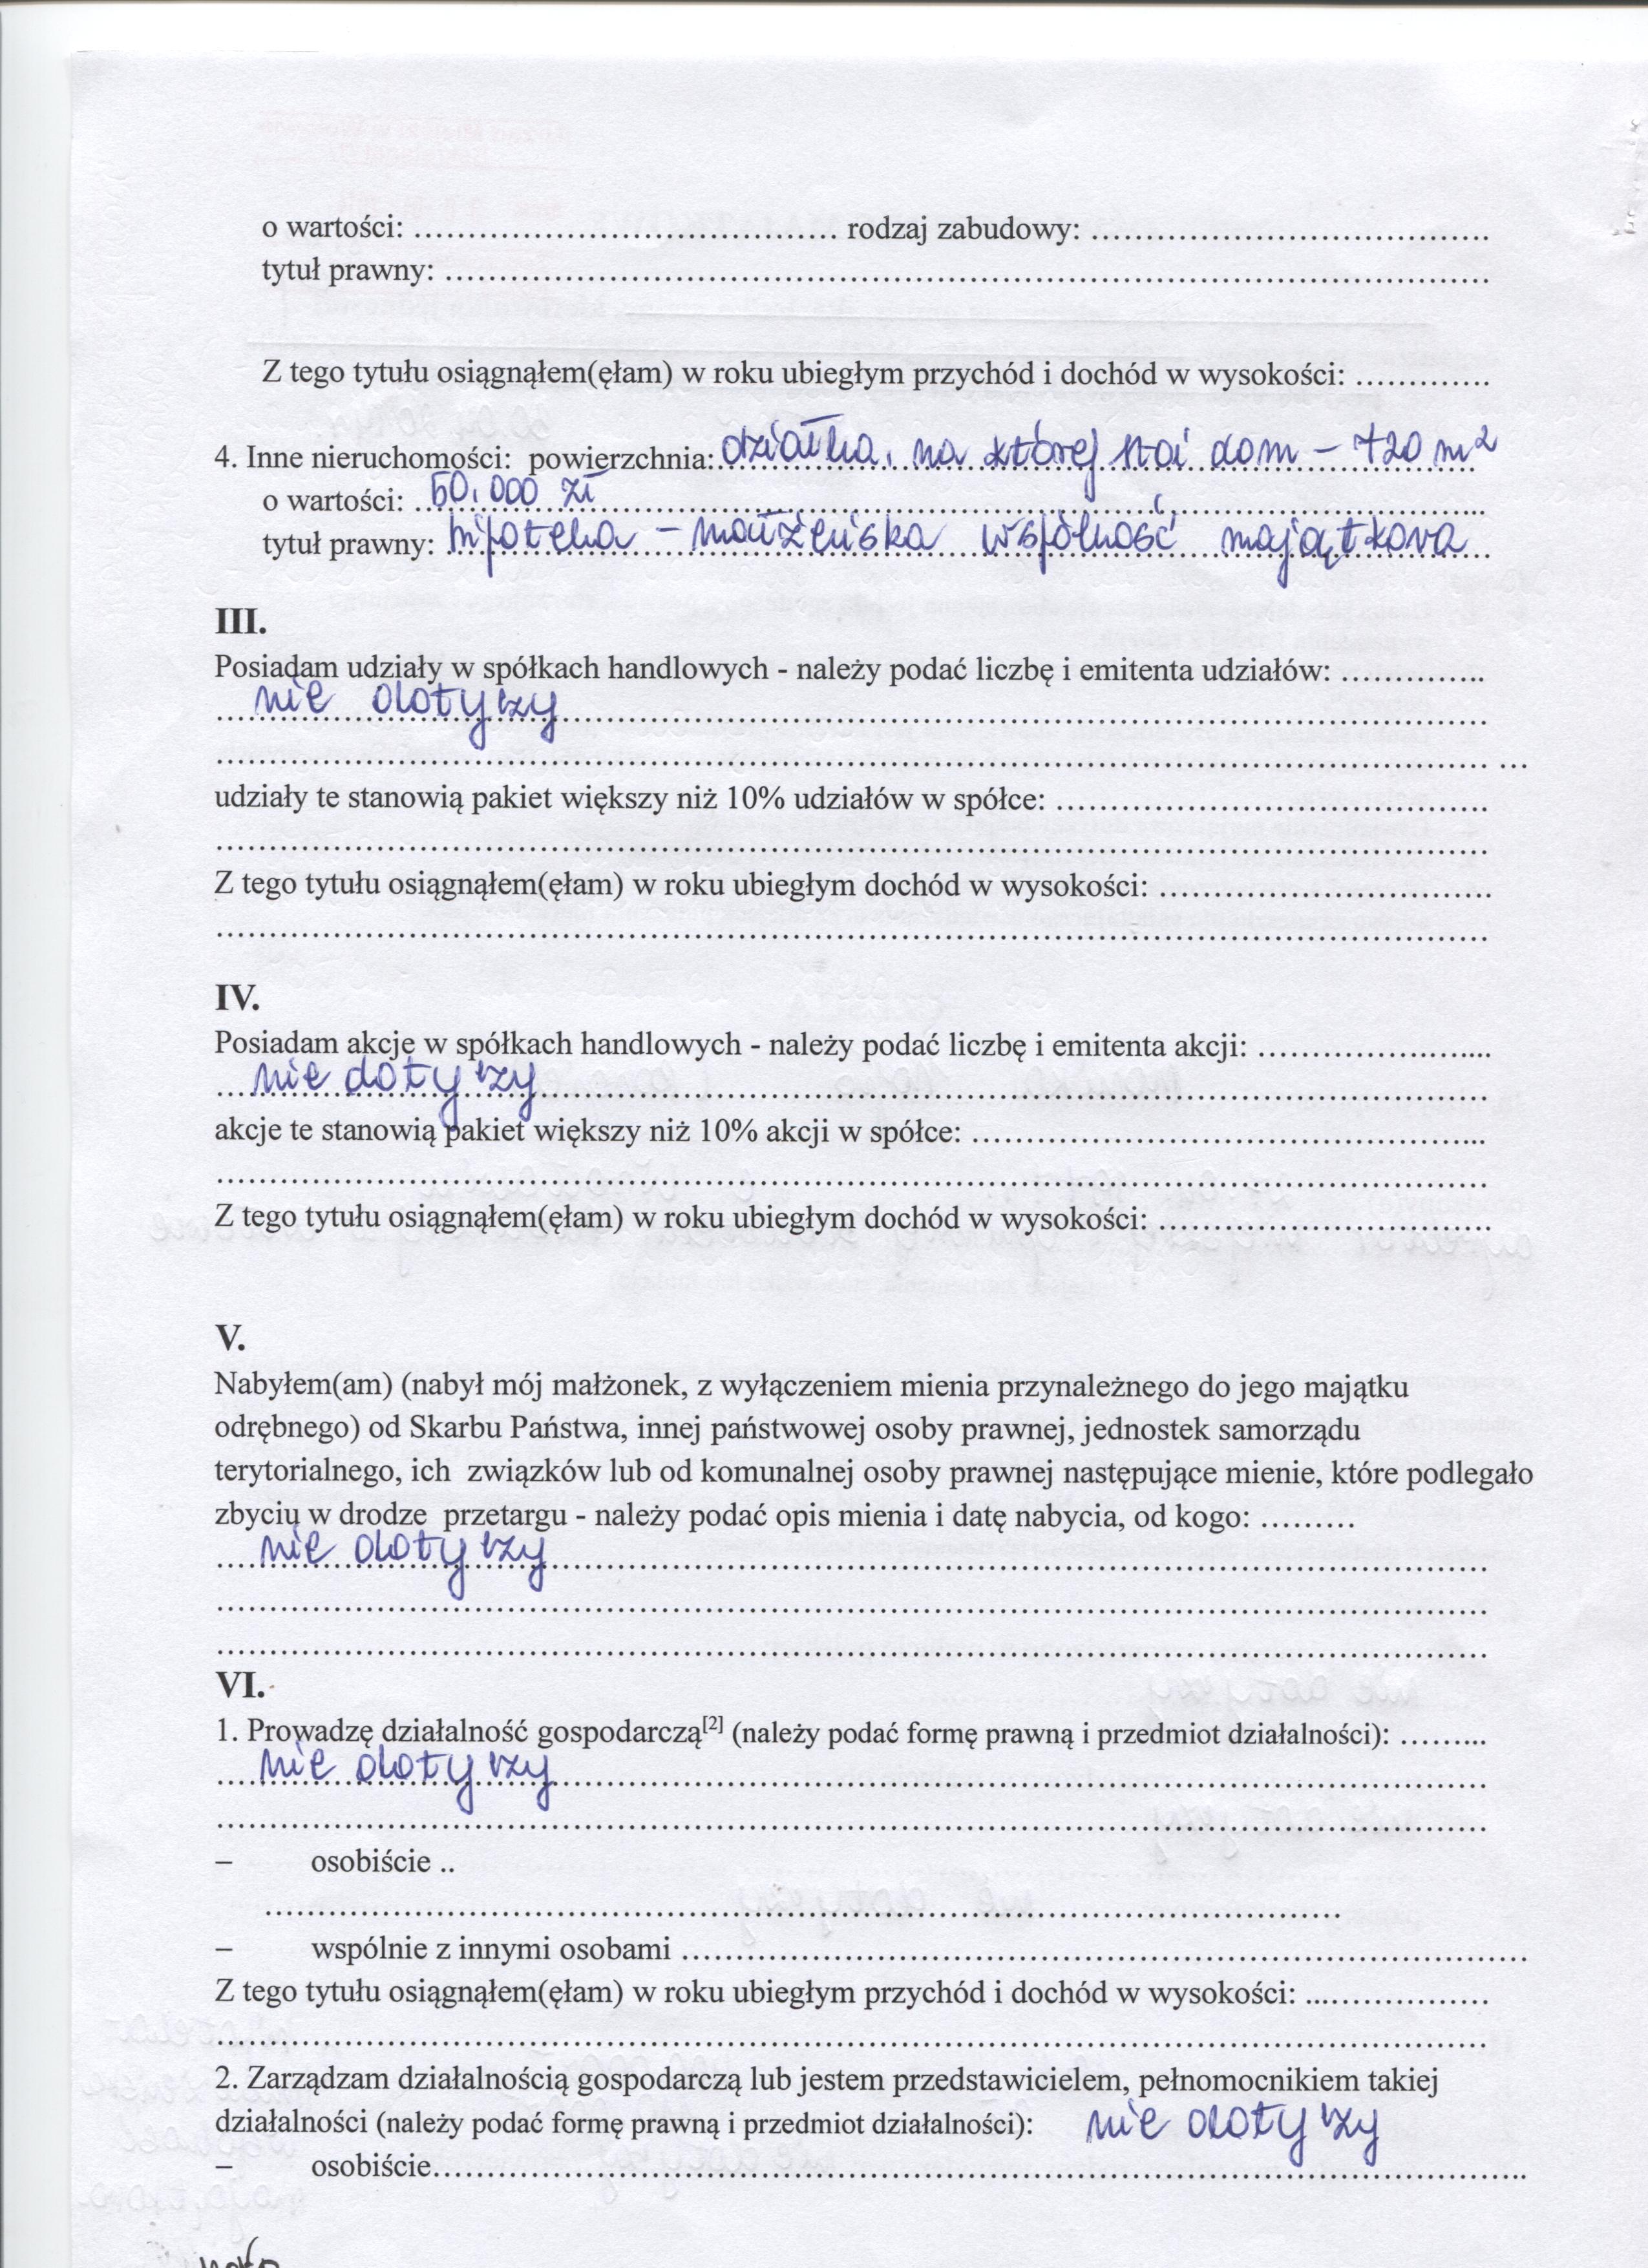 o wartości: .......................................... rodzaj zabudowy: ........................................
tytuł prawny: ........................................................................................................
Z tego tytułu osiągnąłem(ęłam) w roku ubiegłym przychód i dochód w wysokości: .............
4. Inne nieruchomości: powierzchnia: działka, na której stoi dom – 720 m²
o wartości: 50.000 zł
tytuł prawny: hipoteka – małżeńska wspólność majątkowa
III.
Posiadam udziały w spółkach handlowych - należy podać liczbę i emitenta udziałów: ..............
nie dotyczy
................................................................................................................................
udziały te stanowią pakiet większy niż 10% udziałów w spółce: ...........................................
................................................................................................................................
Z tego tytułu osiągnąłem(ęłam) w roku ubiegłym dochód w wysokości: .................................
................................................................................................................................
IV.
Posiadam akcje w spółkach handlowych - należy podać liczbę i emitenta akcji: .......................
nie dotyczy
akcje te stanowią pakiet większy niż 10% akcji w spółce: ...................................................
................................................................................................................................
Z tego tytułu osiągnąłem(ęłam) w roku ubiegłym dochód w wysokości: .................................
V.
Nabyłem(am) (nabył mój małżonek, z wyłączeniem mienia przynależnego do jego majątku
odrębnego) od Skarbu Państwa, innej państwowej osoby prawnej, jednostek samorządu
terytorialnego, ich związków lub od komunalnej osoby prawnej następujące mienie, które podlegało
zbyciu w drodze przetargu - należy podać opis mienia i datę nabycia, od kogo: .........
nie dotyczy
................................................................................................................................
................................................................................................................................
VI.
1. Prowadzę działalność gospodarczą[2] (należy podać formę prawną i przedmiot działalności): .........
nie dotyczy
................................................................................................................................
– osobiście ..
.............................................................................................................
– wspólnie z innymi osobami .....................................................................................
Z tego tytułu osiągnąłem(ęłam) w roku ubiegłym przychód i dochód w wysokości: ..................
................................................................................................................................
2. Zarządzam działalnością gospodarczą lub jestem przedstawicielem, pełnomocnikiem takiej
działalności (należy podać formę prawną i przedmiot działalności): nie dotyczy
– osobiście..............................................................................................................